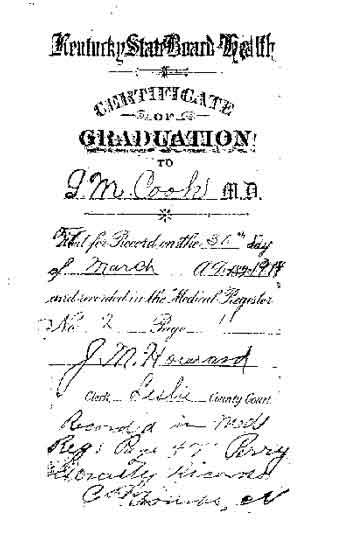 Kentucky State Board of Health
CERTIFICATE
OF
GRADUATION
TO
J. M. Cook M.D.
for Record on the 30th day
of March A.D. 1914
and recorded in the Medical Register
No. 2 Page 1
J. M. Howard
Clerk Leslie County Court
Recorded in Med
Reg: Page 47 Perry